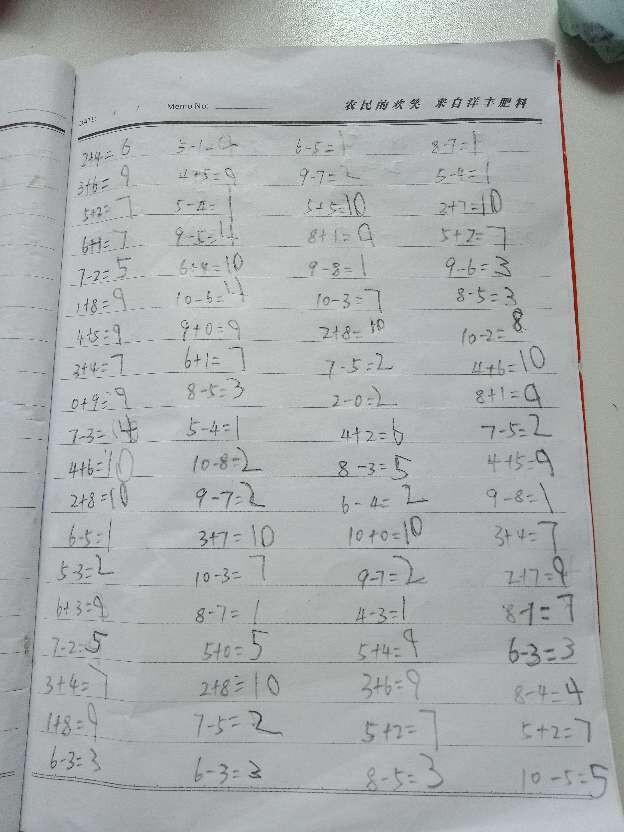 Memo No: 农民的欢笑 来自洋丰肥料
DATE: / /
2+4=6 5-1= 6-5=1 8-7=1
3+6=9 4+5=9 9-7=2 5-4=1
5+2=7 5-4=1 5+5=10 2+7=10
6+1=7 9-5=4 8+1=9 5+2=7
7-2=5 6+4=10 9-8=1 9-6=3
1+8=9 10-6=4 10-3=7 8-5=3
4+5=9 9+0=9 2+8=10 10-2=8
3+4=7 6+1=7 7-5=2 4+6=10
0+9=9 8-5=3 2-0=2 8+1=9
7-3=4 5-4=1 4+2=6 7-5=2
4+6=10 10-8=2 8-3=5 4+5=9
2+8=10 9-7=2 6-4=2 9-8=1
6-5=1 3+7=10 10+0=10 3+4=7
5-3=2 10-3=7 9-7=2 2+7=9
6+3=9 8-7=1 4-3=1 8-1=7
7-2=5 5+0=5 5+4=9 6-3=3
3+4=7 2+8=10 3+6=9 8-4=4
1+8=9 7-5=2 5+2=7 5+2=7
6-3=3 6-3=3 8-5=3 10-5=5